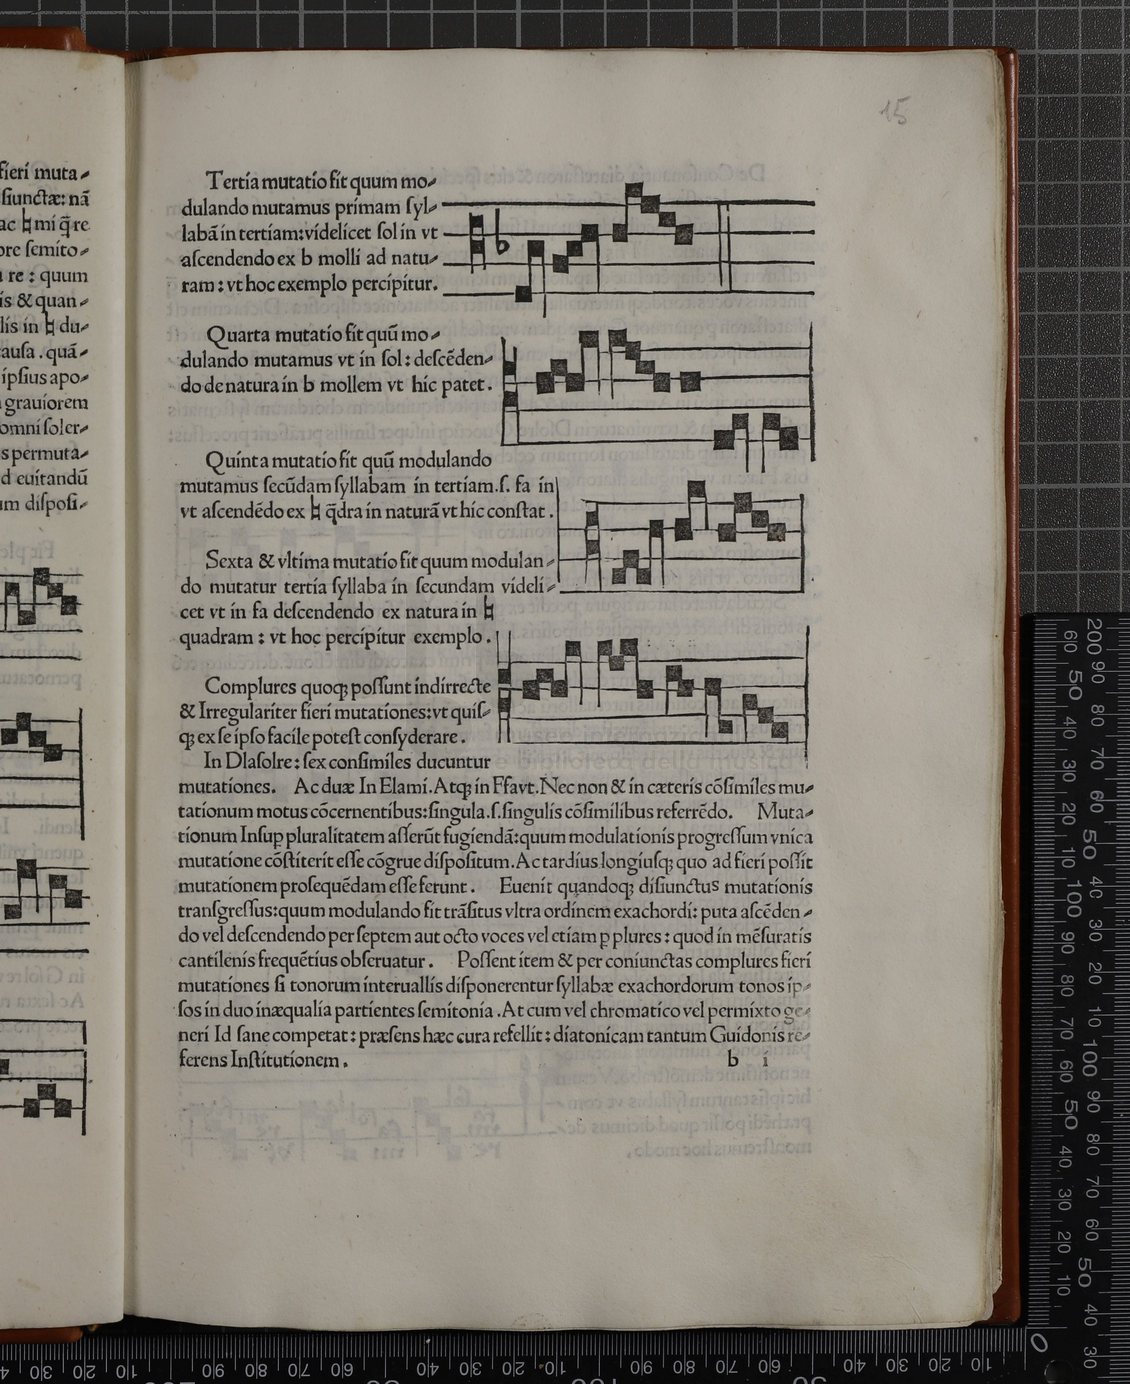 15
Tertia mutatio fit quum mo⸗
dulando mutamus primam ſyl⸗
labã in tertiam: videlicet ſol in vt
aſcendendo ex b molli ad natu⸗
ram: vt hoc exemplo percipitur.
Quarta mutatio fit quũ mo⸗
dulando mutamus vt in ſol: deſcẽden⸗
do de natura in b mollem vt hic patet.
Quinta mutatio fit quũ modulando
mutamus ſecũdam ſyllabam in tertiam.ſ. fa in
vt aſcendẽdo ex ♮ q̃dra in naturã vt hic conſtat.
Sexta & vltima mutatio fit quum modulan⸗
do mutatur tertia ſyllaba in ſecundam videli⸗
cet vt in fa deſcendendo ex natura in ♮
quadram: vt hoc percipitur exemplo.
Complures quoqꝫ poſſunt indirrecte
& Irregulariter fieri mutationes: vt quiſ⸗
qꝫ ex ſe ipſo facile poteſt conſyderare.
In Dlaſolre: ſex conſimiles ducuntur
mutationes. Ac duæ In Elami. Atqꝫ in Ffavt. Nec non & in cæteris cõſimiles mu⸗
tationum motus cõcernentibus: ſingula.ſ. ſingulis cõſimilibus referrẽdo. Muta⸗
tionum Inſup pluralitatem aſſerũt fugiendã: quum modulationis progreſſum vnica
mutatione cõſtiterit eſſe cõgrue diſpoſitum. Ac tardius longiuſqꝫ quo ad fieri poſſit
mutationem proſequẽdam eſſe ferunt. Euenit quandoqꝫ diſiunctus mutationis
tranſgreſſus: quum modulando fit trãſitus vltra ordinem exachordi: puta aſcẽden⸗
do vel deſcendendo per ſeptem aut octo voces vel etiam ꝑ plures: quod in mẽſuratis
cantilenis frequẽtius obſeruatur. Poſſent item & per coniunctas complures fieri
mutationes ſi tonorum interuallis diſponerentur ſyllabæ exachordorum tonos ip⸗
ſos in duo inæqualia partientes ſemitonia. At cum vel chromatico vel permixto ge⸗
neri Id ſane competat: præſens hæc cura refellit: diatonicam tantum Guidonis re⸗
ferens Inſtitutionem.
b i